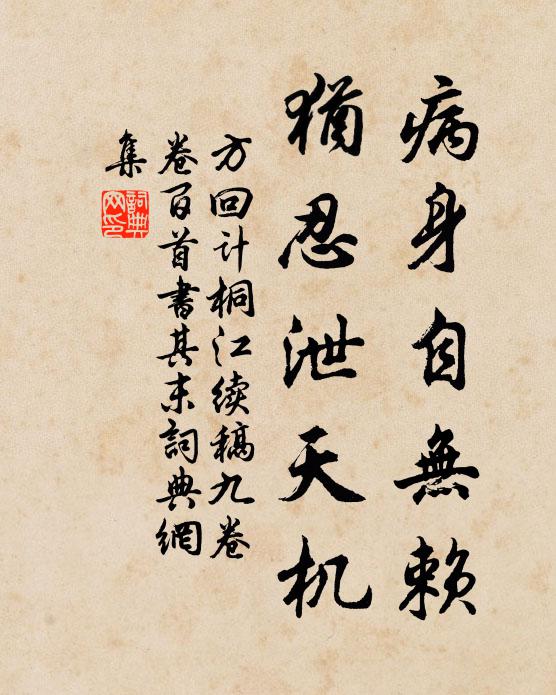 病身自無賴
猶忍泄天机
方回计桐江续稿九卷
卷百首書其末詞典網
集
詞典
网印